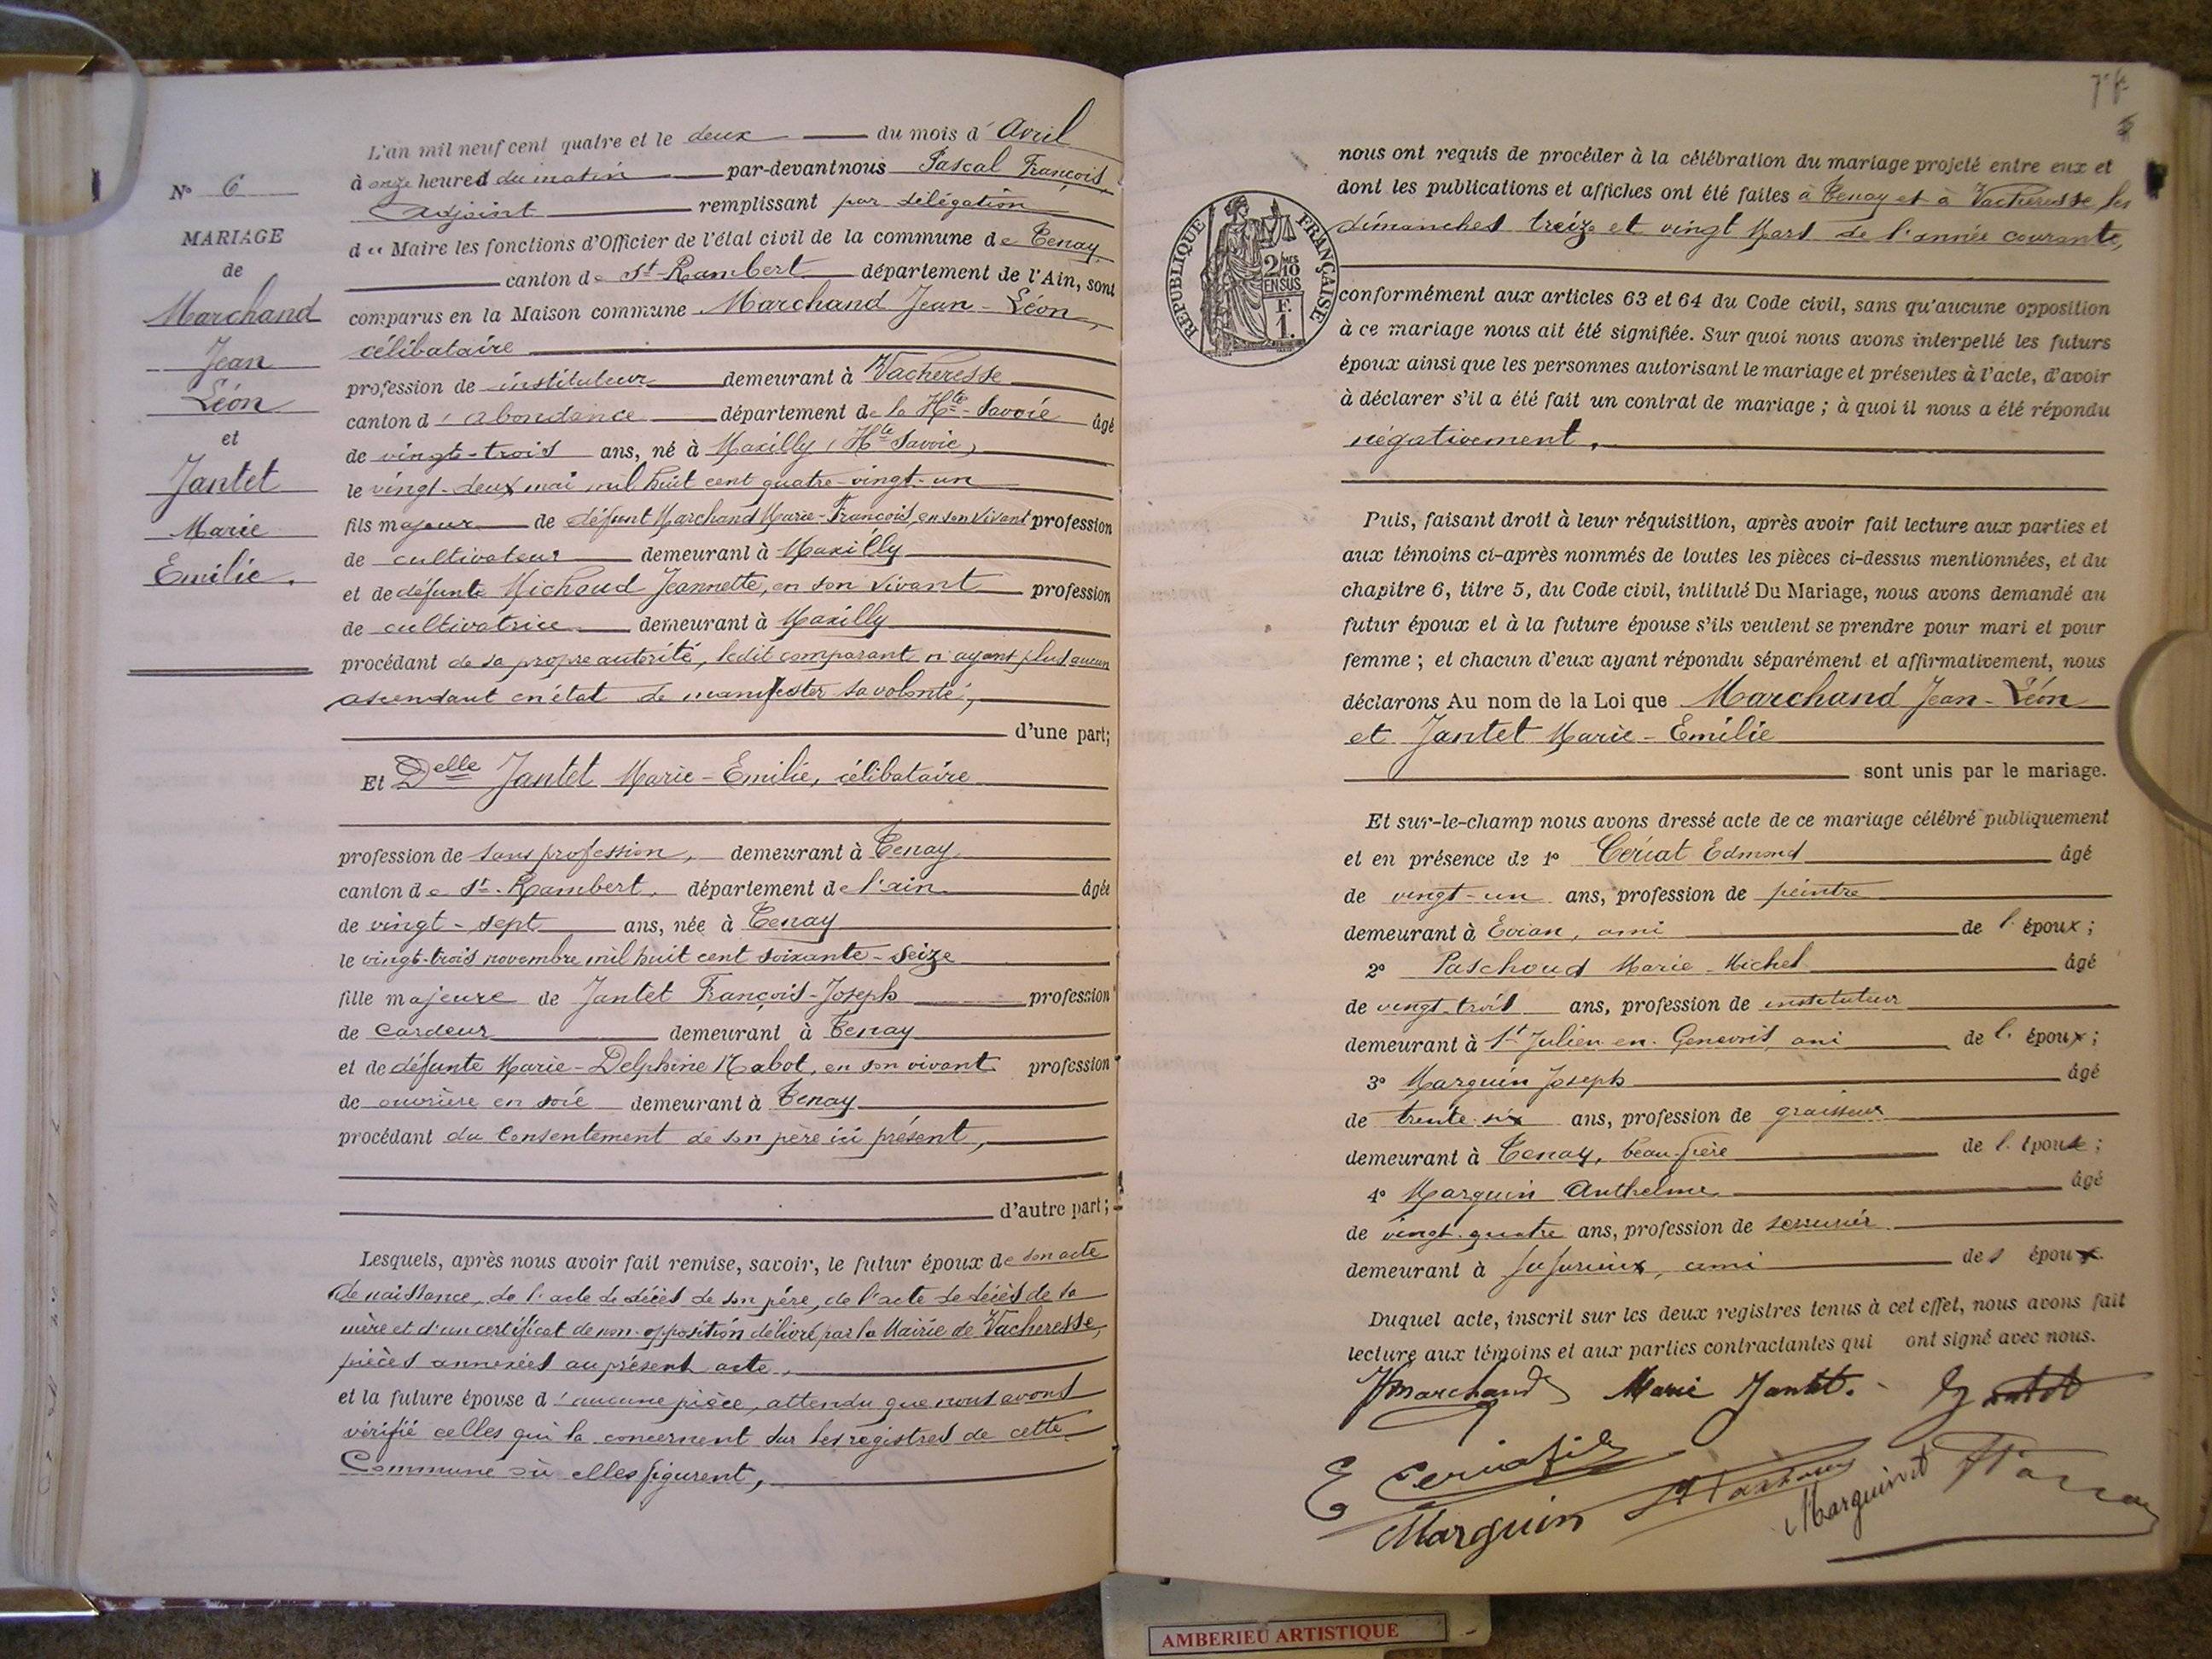 N° 6
MARIAGE
de
Marchand
Jean
Léon
et
Jantet
Marie
Emilie.
L'an mil neuf cent quatre et le deux du mois d' Avril
à onze heures du matin par-devant nous Pascal François,
adjoint remplissant par délégation
du Maire les fonctions d'Officier de l'état civil de la commune de Tenay,
canton de St-Rambert département de l'Ain, sont
comparus en la Maison commune Marchand Jean-Léon,
célibataire
profession de instituteur demeurant à Vacheresse
canton d'abondance département de la Hte-Savoie âgé
de vingt-trois ans, né à Maxilly (Hte Savoie)
le vingt-deux mai mil huit cent quatre-vingt-un
fils majeur de défunt Marchand Marie-François, en son vivant profession
de cultivateur demeurant à Maxilly
et de défunte Michoud Jeannette, en son vivant profession
de cultivatrice demeurant à Maxilly
procédant de sa propre autorité, ledit comparant n'ayant plus aucun
ascendant en état de manifester sa volonté,
d'une part;
Et Delle Jantet Marie-Emilie, célibataire
profession de sans profession, demeurant à Tenay
canton de St-Rambert, département de l'ain âgée
de vingt-sept ans, née à Tenay
le vingt-trois novembre mil huit cent soixante-seize
fille majeure de Jantet François-Joseph profession
de cardeur demeurant à Tenay
et de défunte Marie-Delphine Mabot, en son vivant profession
de ouvrière en soie demeurant à Tenay
procédant du consentement de son père ici présent,
d'autre part;
Lesquels, après nous avoir fait remise, savoir, le futur époux de son acte
de naissance, de l'acte de décès de son père, de l'acte de décès de sa
mère et d'un certificat de non-opposition délivré par la Mairie de Vacheresse,
pièces annexées au présent acte,
et la future épouse d'aucune pièce, attendu que nous avons
vérifié celles qui la concernent sur les registres de cette
Commune où elles figurent,
RÉPUBLIQUE FRANÇAISE
2/10 MES
EN SUS
F.
1.
nous ont requis de procéder à la célébration du mariage projeté entre eux et
dont les publications et affiches ont été faites à Tenay et à Vacheresse les
dimanches treize et vingt Mars de l'année courante,
conformément aux articles 63 et 64 du Code civil, sans qu'aucune opposition
à ce mariage nous ait été signifiée. Sur quoi nous avons interpellé les futurs
époux ainsi que les personnes autorisant le mariage et présentes à l'acte, d'avoir
à déclarer s'il a été fait un contrat de mariage ; à quoi il nous a été répondu
négativement.
Puis, faisant droit à leur réquisition, après avoir fait lecture aux parties et
aux témoins ci-après nommés de toutes les pièces ci-dessus mentionnées, et du
chapitre 6, titre 5, du Code civil, intitulé Du Mariage, nous avons demandé au
futur époux et à la future épouse s'ils veulent se prendre pour mari et pour
femme ; et chacun d'eux ayant répondu séparément et affirmativement, nous
déclarons Au nom de la Loi que Marchand Jean-Léon
et Jantet Marie-Emilie
sont unis par le mariage.
Et sur-le-champ nous avons dressé acte de ce mariage célébré publiquement
et en présence de 1° Cériat Edmond âgé
de vingt-un ans, profession de peintre
demeurant à Evian, ami de l'époux ;
2° Paschoud Marie-Michel âgé
de vingt-trois ans, profession de instituteur
demeurant à St Julien-en-Genevois, ami de l'époux ;
3° Marguin Joseph âgé
de trente-six ans, profession de graisseur
demeurant à Tenay, beau-frère de l'épouse ;
4° Marguin Anthelme âgé
de vingt-quatre ans, profession de serrurier
demeurant à Jujurieux, ami des époux.
Duquel acte, inscrit sur les deux registres tenus à cet effet, nous avons fait
lecture aux témoins et aux parties contractantes qui ont signé avec nous.
Marchand Marie Jantet. Jantet
E Ceriat fils
Marguin Marguin
AMBERIEU ARTISTIQUE